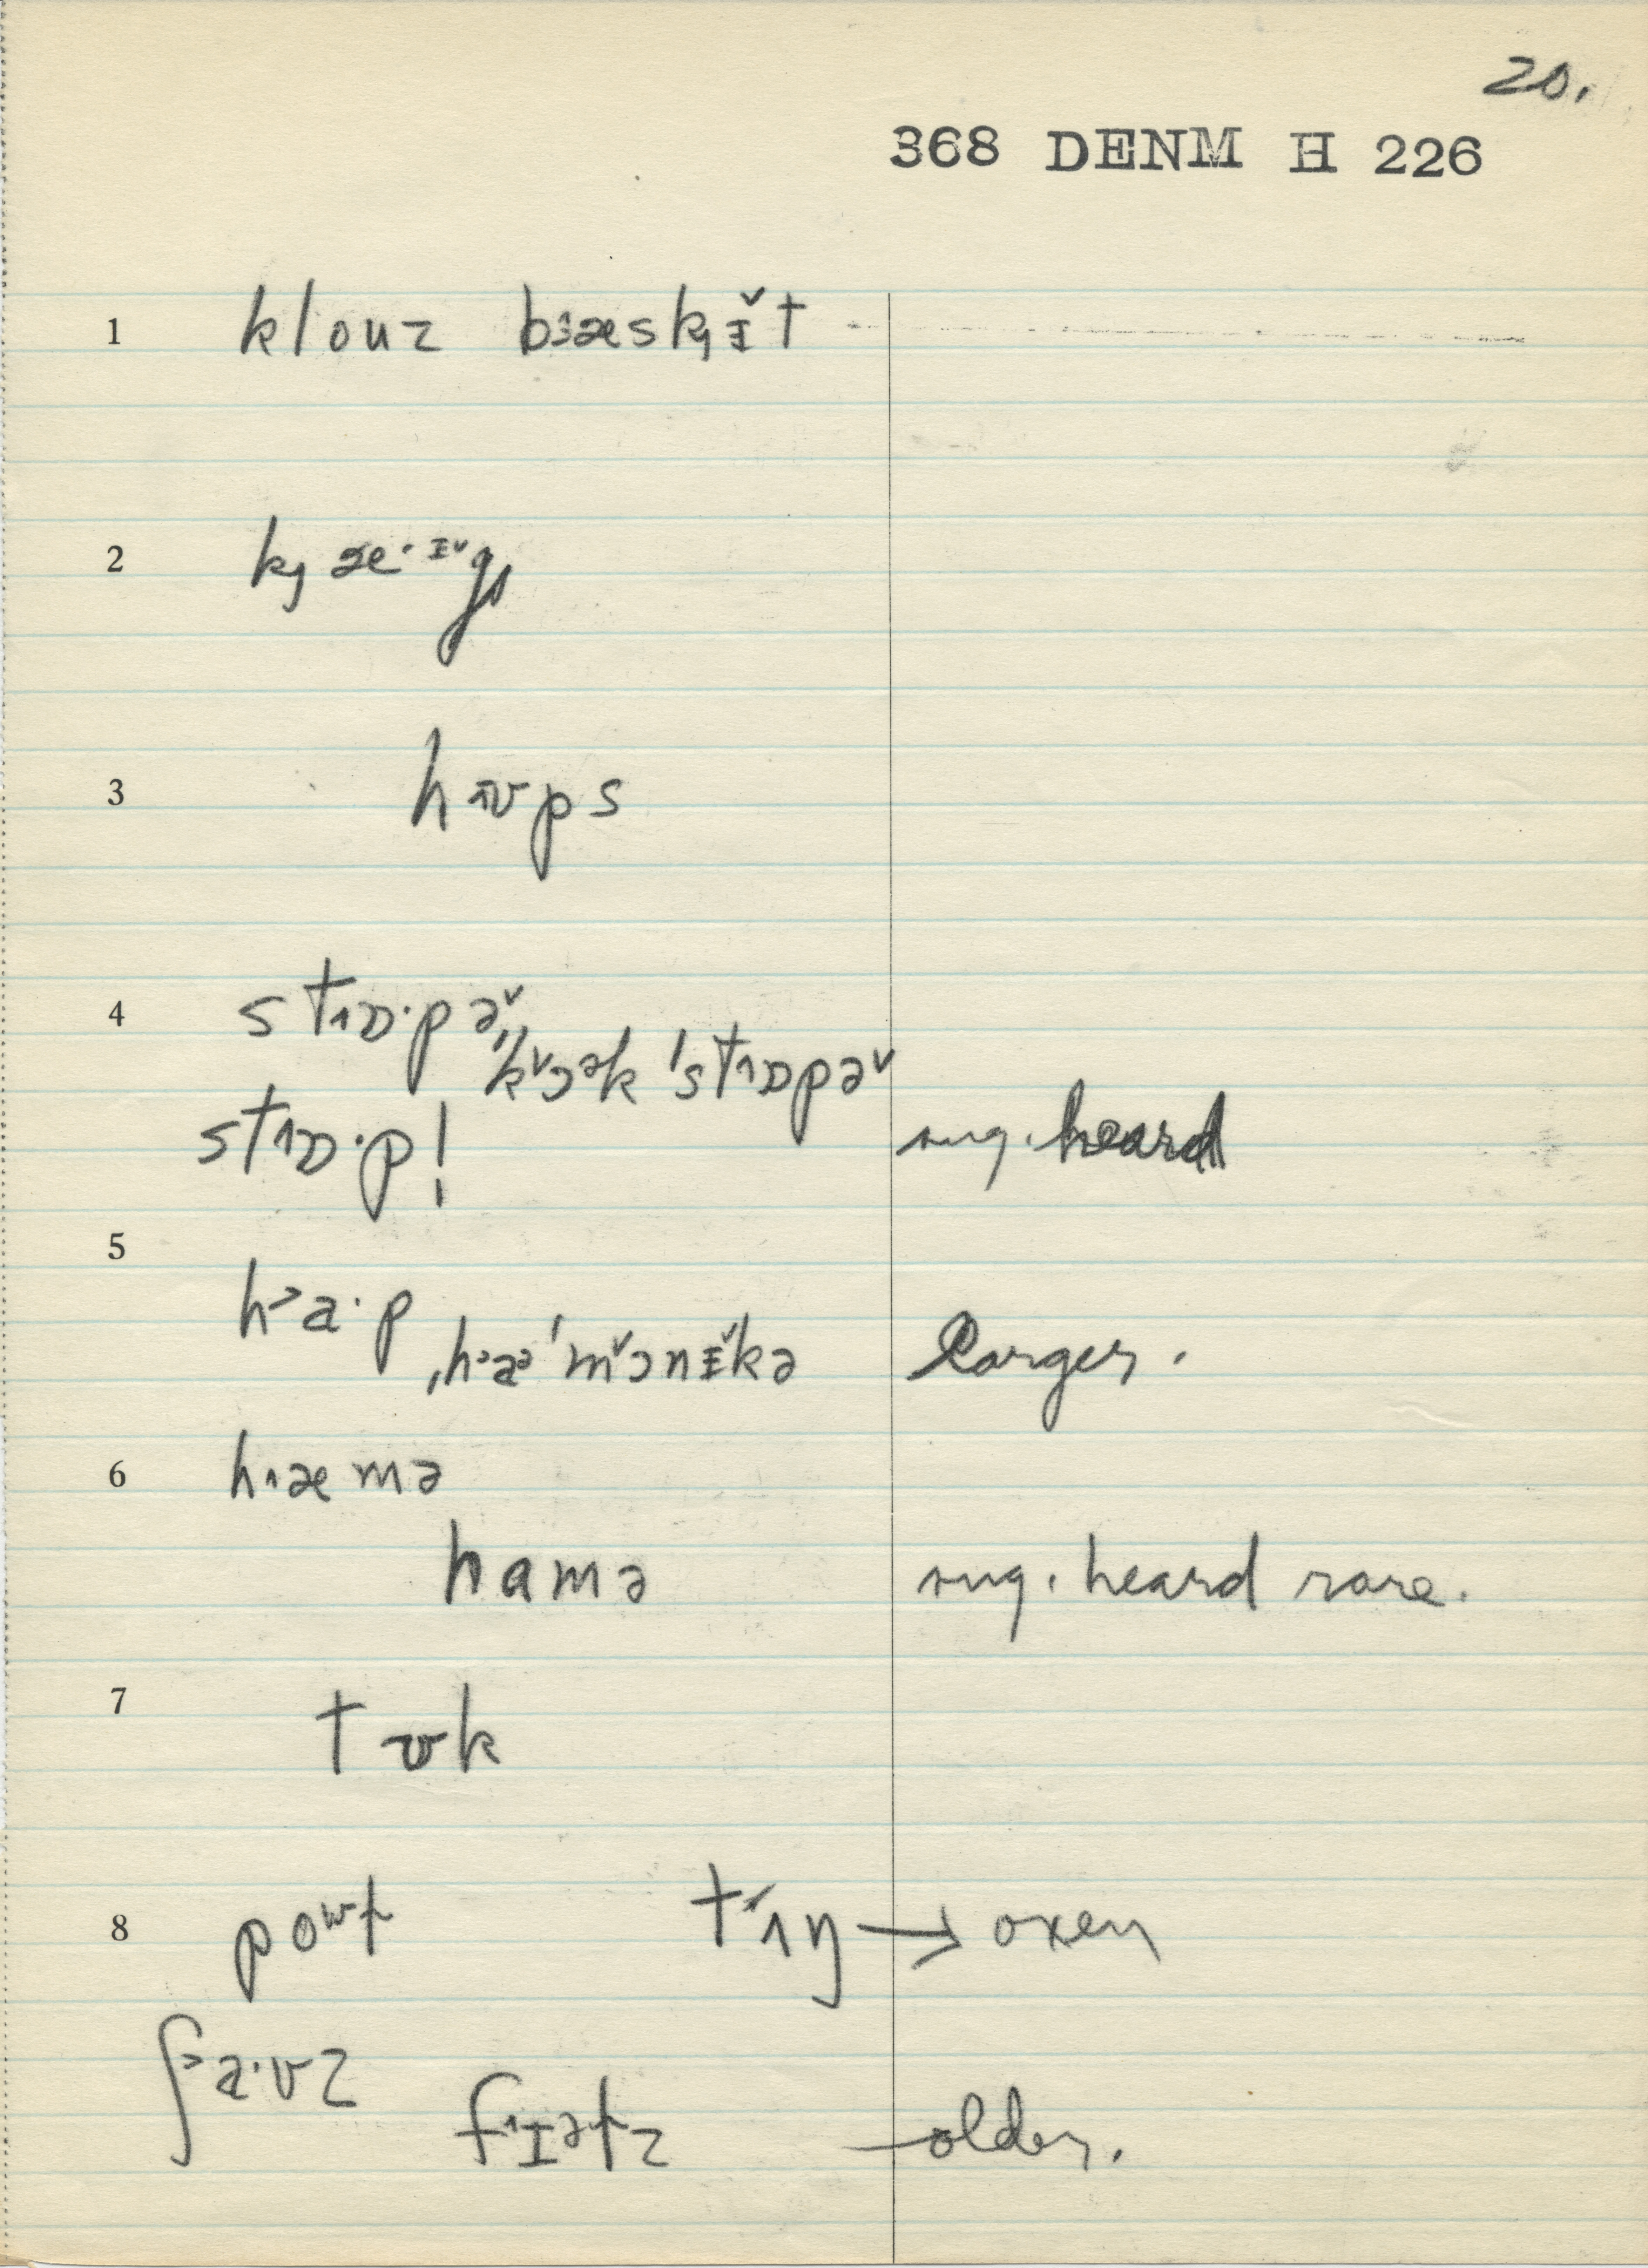 20.
368 DENM H 226
1 klouz bɜæskɪ̯̌t
2 kȷæ·ɪˇgȷ
3 hʊps
4 stɒ·pəˇ
ˈkˇɔək ˈstɒpəˇ
stɒ·p! sug. heard
5 ha·p
ˌhaəˈmˇɔnɪˇkə larger.
6 hæmə
hamə sug. heard rare.
7 tʊk
8 poʷt tʌŋ → oxen
ʃa·vz
fɪətz older.